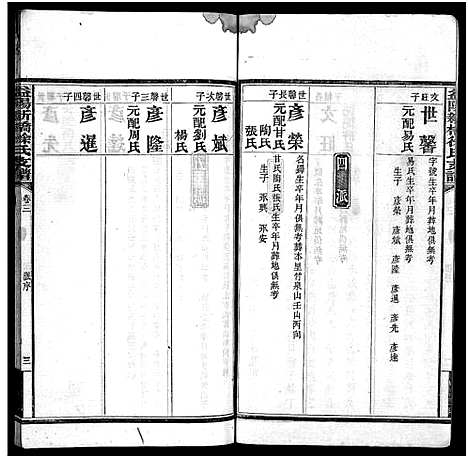 益陽新橋徐氏支譜
文旺子
世馨
元配易氏
字號生卒年月葬地俱無考
易氏生卒年月葬地俱無考
生子 彥榮 彥斌 彥隆 彥暹 彥先 彥達
四派
世馨長子
彥榮
元配甘氏
陶氏
張氏
名錚生卒年月俱無考葬本里竹泉山壬山丙向
甘氏陶氏張氏生卒年月葬地俱無考
生子 永興 永安
世馨次子
彥斌
元配劉氏
楊氏
世馨三子
彥隆
元配周氏
世馨四子
彥暹
益陽新橋徐氏支譜
卷三
三